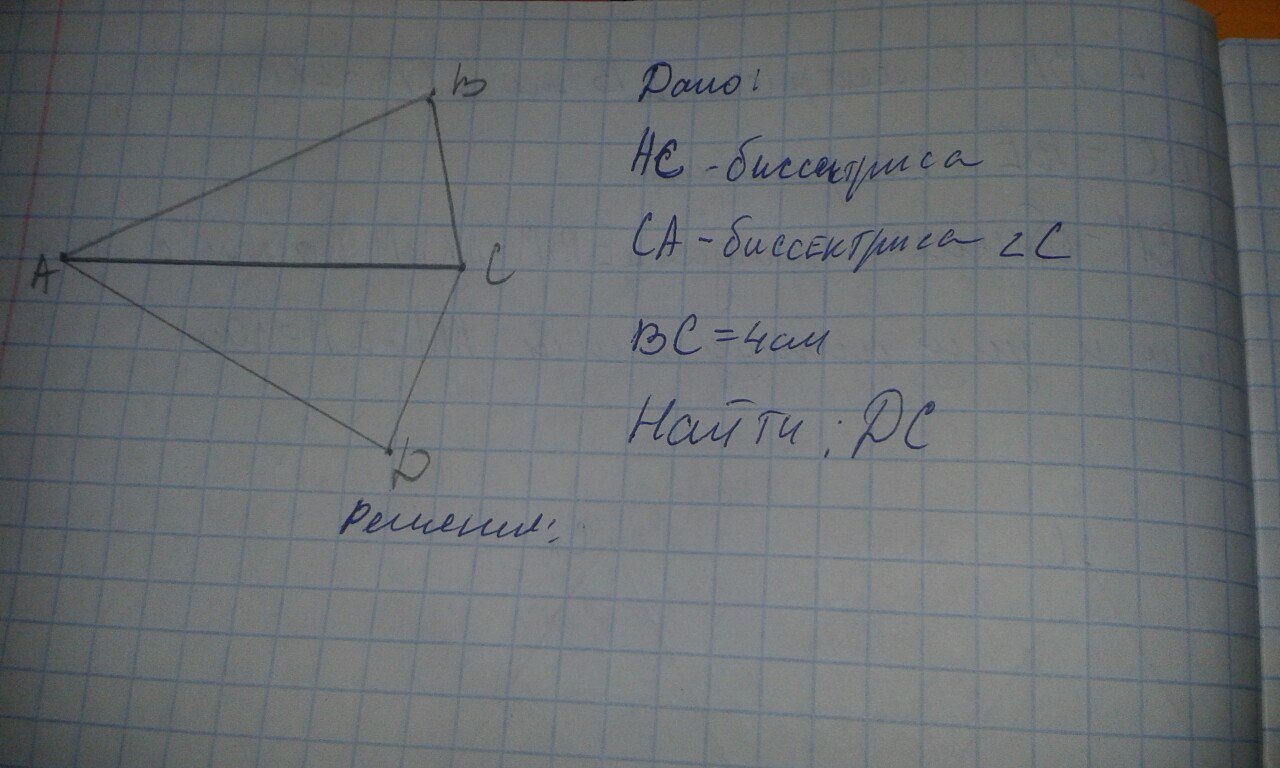 B
A
C
D
Дано:
АС - биссектриса
СА - биссектриса ∠C
BC = 4 см
Найти: DC
Решения: